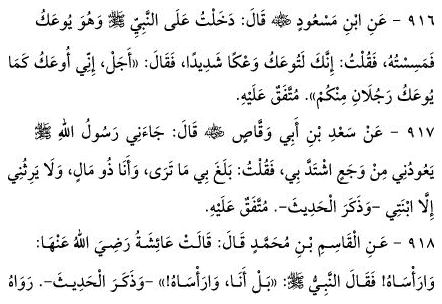 ٩١٦ - عَنِ ابْنِ مَسْعُودٍ ﷺ قَالَ: دَخَلْتُ عَلَى النَّبِيِّ ﷺ وَهُوَ يُوعَكُ
فَمَسِسْتُهُ، فَقُلْتُ: إِنَّكَ لَتُوعَكُ وَعْكًا شَدِيدًا، فَقَالَ: «أَجَلْ، إِنِّي أُوعَكُ كَمَا
يُوعَكُ رَجُلَانِ مِنْكُمْ». مُتَّفَقٌ عَلَيْهِ.
٩١٧ - عَنْ سَعْدِ بْنِ أَبِي وَقَّاصٍ ﷺ قَالَ: جَاءَنِي رَسُولُ اللهِ ﷺ
يَعُودُنِي مِنْ وَجَعٍ اشْتَدَّ بِي، فَقُلْتُ: بَلَغَ بِي مَا تَرَى، وَأَنَا ذُو مَالٍ، وَلَا يَرِثُنِي
إِلَّا ابْنَتِي -وَذَكَرَ الْحَدِيثَ-. مُتَّفَقٌ عَلَيْهِ.
٩١٨ - عَنِ الْقَاسِمِ بْنِ مُحَمَّدٍ قَالَ: قَالَتْ عَائِشَةُ رَضِيَ اللهُ عَنْهَا:
وَارَأْسَاهُ! فَقَالَ النَّبِيُّ ﷺ: «بَلْ أَنَا، وَارَأْسَاهُ!» -وَذَكَرَ الْحَدِيثَ-. رَوَاهُ